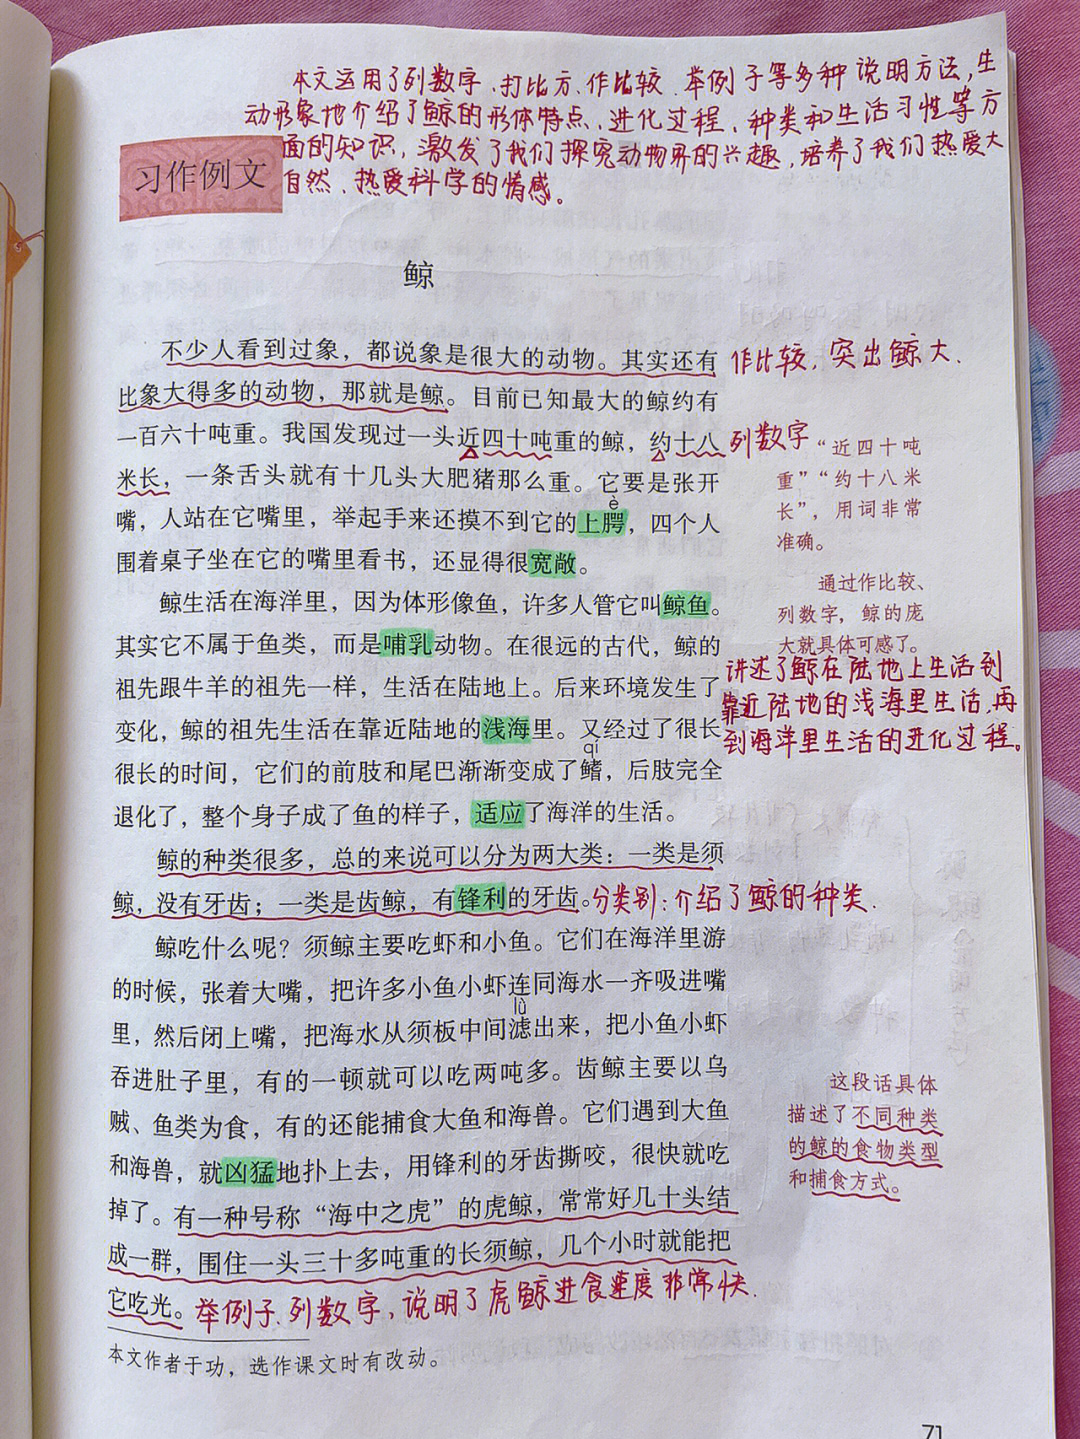 本文运用了列数字、打比方、作比较、举例子等多种说明方法,生
动形象地介绍了鲸的形体特点、进化过程、种类和生活习性等方
面的知识,激发了我们探究动物界的兴趣,培养了我们热爱大
自然、热爱科学的情感。
习作例文
鲸
不少人看到过象，都说象是很大的动物。其实还有
作比较,突出鲸大.
比象大得多的动物，那就是鲸。目前已知最大的鲸约有
一百六十吨重。我国发现过一头近四十吨重的鲸，约十八
列数字
米长，一条舌头就有十几头大肥猪那么重。它要是张开
è
嘴，人站在它嘴里，举起手来还摸不到它的上腭，四个人
围着桌子坐在它的嘴里看书，还显得很宽敞。
“近四十吨
重”“约十八米
长”，用词非常
准确。
通过作比较、
列数字，鲸的庞
大就具体可感了。
鲸生活在海洋里，因为体形像鱼，许多人管它叫鲸鱼。
其实它不属于鱼类，而是哺乳动物。在很远的古代，鲸的
祖先跟牛羊的祖先一样，生活在陆地上。后来环境发生了
变化，鲸的祖先生活在靠近陆地的浅海里。又经过了很长
qí
很长的时间，它们的前肢和尾巴渐渐变成了鳍，后肢完全
退化了，整个身子成了鱼的样子，适应了海洋的生活。
讲述了鲸在陆地上生活到
靠近陆地的浅海里生活,再
到海洋里生活的进化过程。
鲸的种类很多，总的来说可以分为两大类：一类是须
鲸，没有牙齿；一类是齿鲸，有锋利的牙齿。
分类别:介绍了鲸的种类.
鲸吃什么呢？须鲸主要吃虾和小鱼。它们在海洋里游
的时候，张着大嘴，把许多小鱼小虾连同海水一齐吸进嘴
lǜ
里，然后闭上嘴，把海水从须板中间滤出来，把小鱼小虾
吞进肚子里，有的一顿就可以吃两吨多。齿鲸主要以乌
贼、鱼类为食，有的还能捕食大鱼和海兽。它们遇到大鱼
和海兽，就凶猛地扑上去，用锋利的牙齿撕咬，很快就吃
掉了。有一种号称“海中之虎”的虎鲸，常常好几十头结
成一群，围住一头三十多吨重的长须鲸，几个小时就能把
它吃光。
举例子.列数字,说明了虎鲸进食速度非常快.
这段话具体
描述了不同种类
的鲸的食物类型
和捕食方式。
本文作者于功，选作课文时有改动。
71